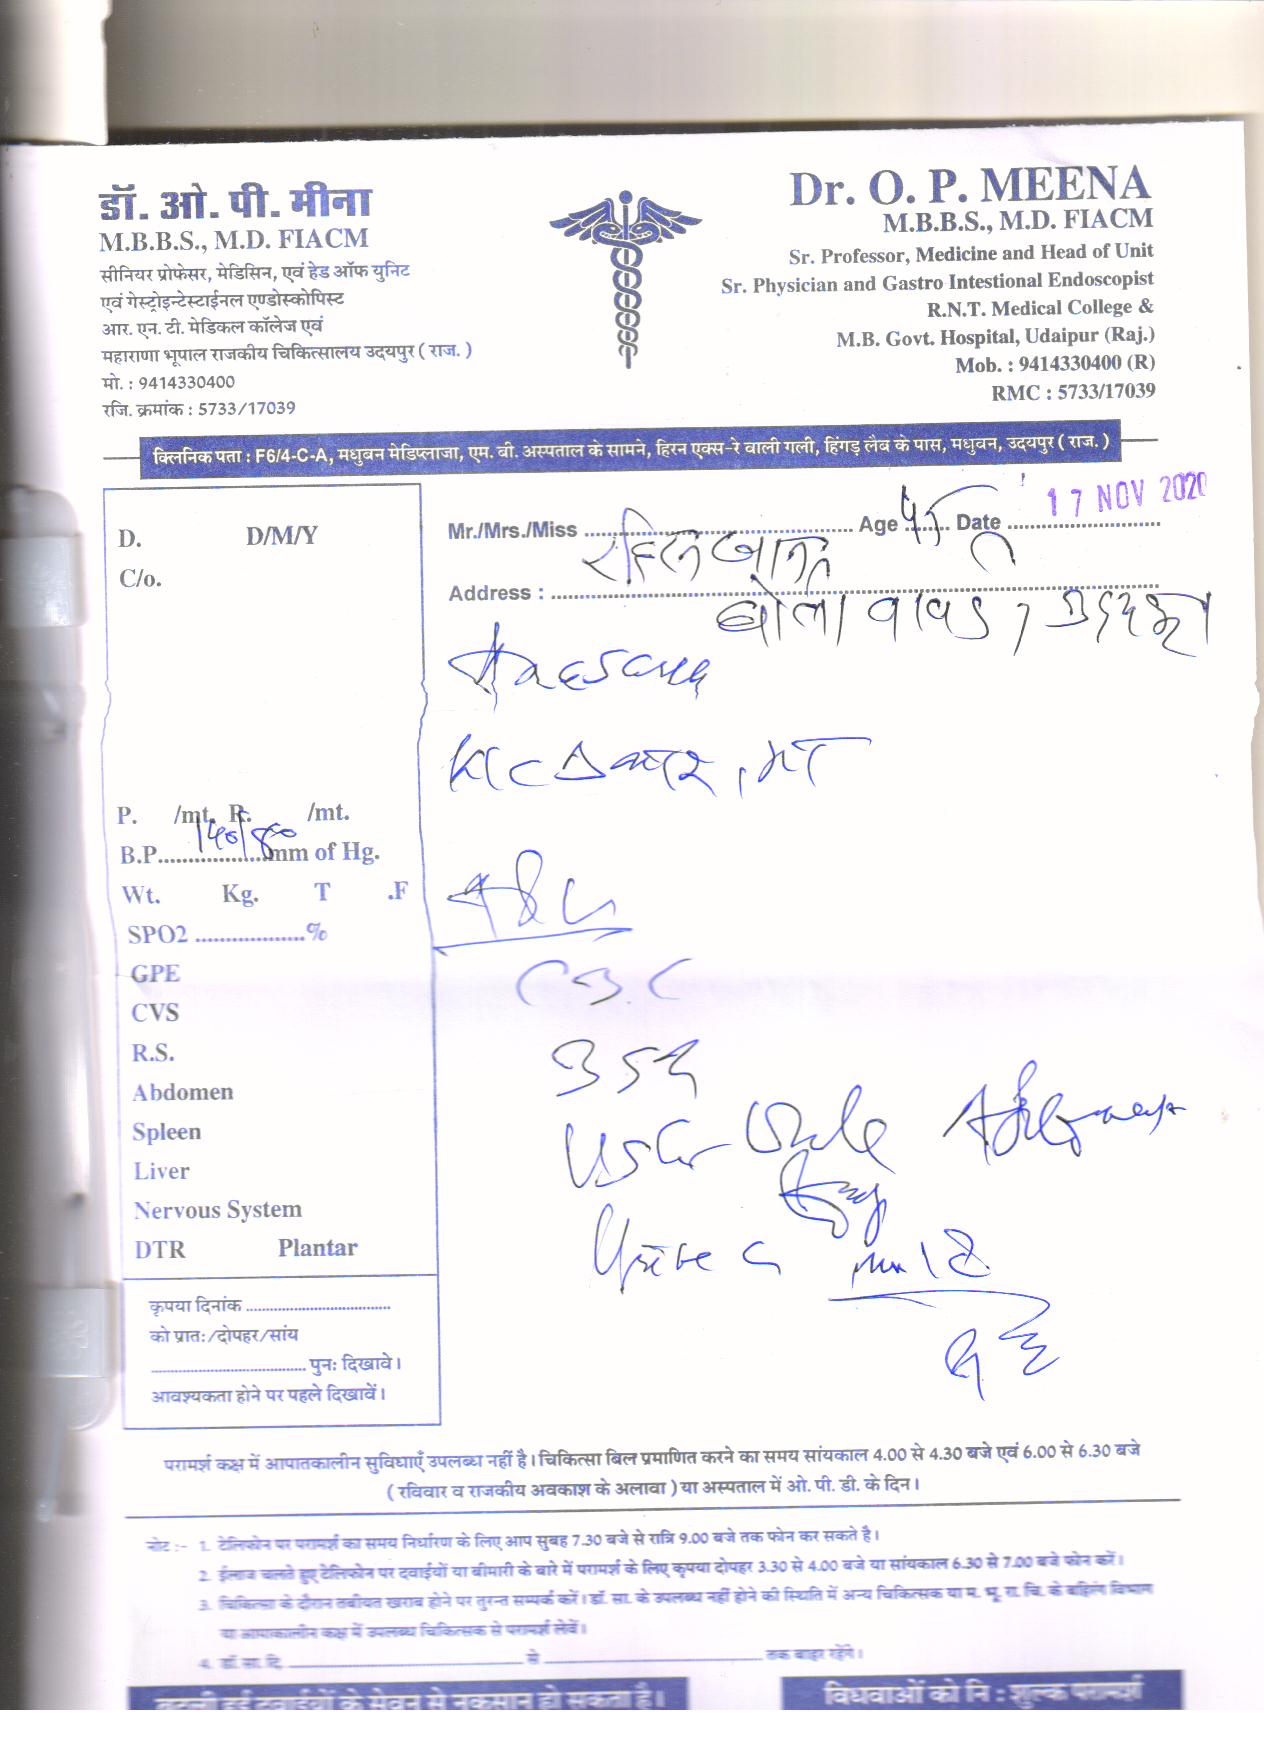 डॉ. ओ. पी. मीना
M.B.B.S., M.D. FIACM
सीनियर प्रोफेसर, मेडिसिन, एवं हेड ऑफ युनिट
एवं गेस्ट्रोइन्टेस्टाईनल एण्डोस्कोपिस्ट
आर. एन. टी. मेडिकल कॉलेज एवं
महाराणा भूपाल राजकीय चिकित्सालय उदयपुर ( राज. )
मो. : 9414330400
रजि. क्रमांक : 5733/17039
Dr. O. P. MEENA
M.B.B.S., M.D. FIACM
Sr. Professor, Medicine and Head of Unit
Sr. Physician and Gastro Intestional Endoscopist
R.N.T. Medical College &
M.B. Govt. Hospital, Udaipur (Raj.)
Mob. : 9414330400 (R)
RMC : 5733/17039
क्लिनिक पता : F6/4-C-A, मधुबन मेडिप्लाजा, एम. बी. अस्पताल के सामने, हिरन एक्स-रे वाली गली, हिंगड़ लैब के पास, मधुवन, उदयपुर ( राज. )
D. D/M/Y
C/o.
P. /mt. R. /mt.
B.P. 140/80 mm of Hg.
Wt. Kg. T .F
SPO2 ..................%
GPE
CVS
R.S.
Abdomen
Spleen
Liver
Nervous System
DTR Plantar
कृपया दिनांक ....................................
को प्रातः/दोपहर/सांय
.................................... पुनः दिखावे।
आवश्यकता होने पर पहले दिखावें।
Mr./Mrs./Miss Age 45 Date 17 NOV 2020
Address :
CBC
परामर्श कक्ष में आपातकालीन सुविधाएँ उपलब्ध नहीं है। चिकित्सा बिल प्रमाणित करने का समय सांयकाल 4.00 से 4.30 बजे एवं 6.00 से 6.30 बजे
( रविवार व राजकीय अवकाश के अलावा ) या अस्पताल में ओ. पी. डी. के दिन।
नोट :- 1. टेलिफोन पर परामर्श का समय निर्धारण के लिए आप सुबह 7.30 बजे से रात्रि 9.00 बजे तक फोन कर सकते है।
2. ईलाज चलते हुए टेलिफोन पर दवाईयों या बीमारी के बारे में परामर्श के लिए कृपया दोपहर 3.30 से 4.00 बजे या सांयकाल 6.30 से 7.00 बजे फोन करें।
3. चिकित्सा के दौरान तबीयत खराब होने पर तुरन्त सम्पर्क करें। डॉ. सा. के उपलब्ध नहीं होने की स्थिति में अन्य चिकित्सक या म. भू. रा. चि. के बहिरंग विभाग
या आपाकालीन कक्ष में उपलब्ध चिकित्सक से परामर्श लेवें।
4. डॉ. सा. दि. ........................ से ........................ तक बाहर रहेंगे।
बदली हुई दवाईयों के सेवन से नुकसान हो सकता है।
विधवाओं को नि : शुल्क परामर्श